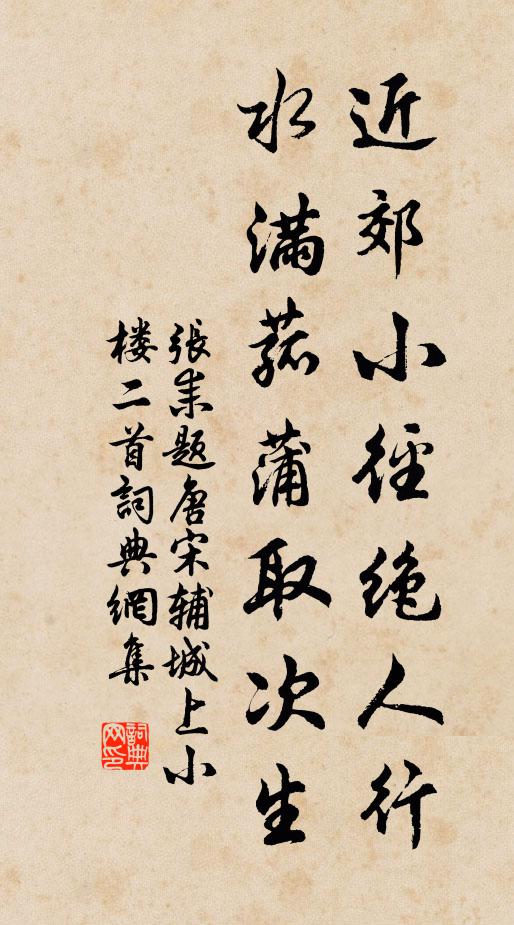 近郊小径绝人行
水满菰蒲取次生
張耒题唐宋辅城上小
楼二首詞典網集
詞典网印